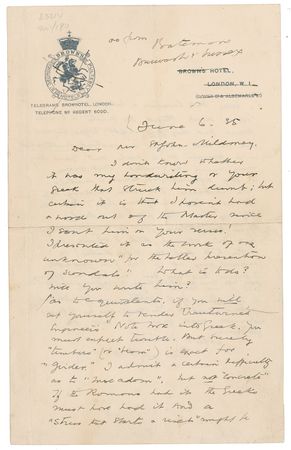 as from Bateman's
Burwash Sussex
BROWN'S HOTEL,
LONDON, W.1.
(DOVER & ALBEMARLE ST)
TELEGRAMS BROWNHOTEL, LONDON.
TELEPHONE Nº REGENT 6020.
June 6. 35
Dear Mr St John Mildmay.
I don't know whether
it was my handwriting or your
Greek that struck him dumb; but
certain it is that I haven't had
a word out of the Master since
I sent him on your verses!
I presented it as the work of one
unknown "for the better prevention
of scandals". What is to do?
Will you write him?
As to equivalents, if you will
set yourself to render
Engineer's Note Book into Greek, you
must expect trouble. But surely
"timbers" (or "beam") is exact for
"girder." I admit a certain difficulty
as to "macadam", but not "concrete"
If the Romans had it the Greeks
must have had it. And a
"Stress that starts a rivet" might be